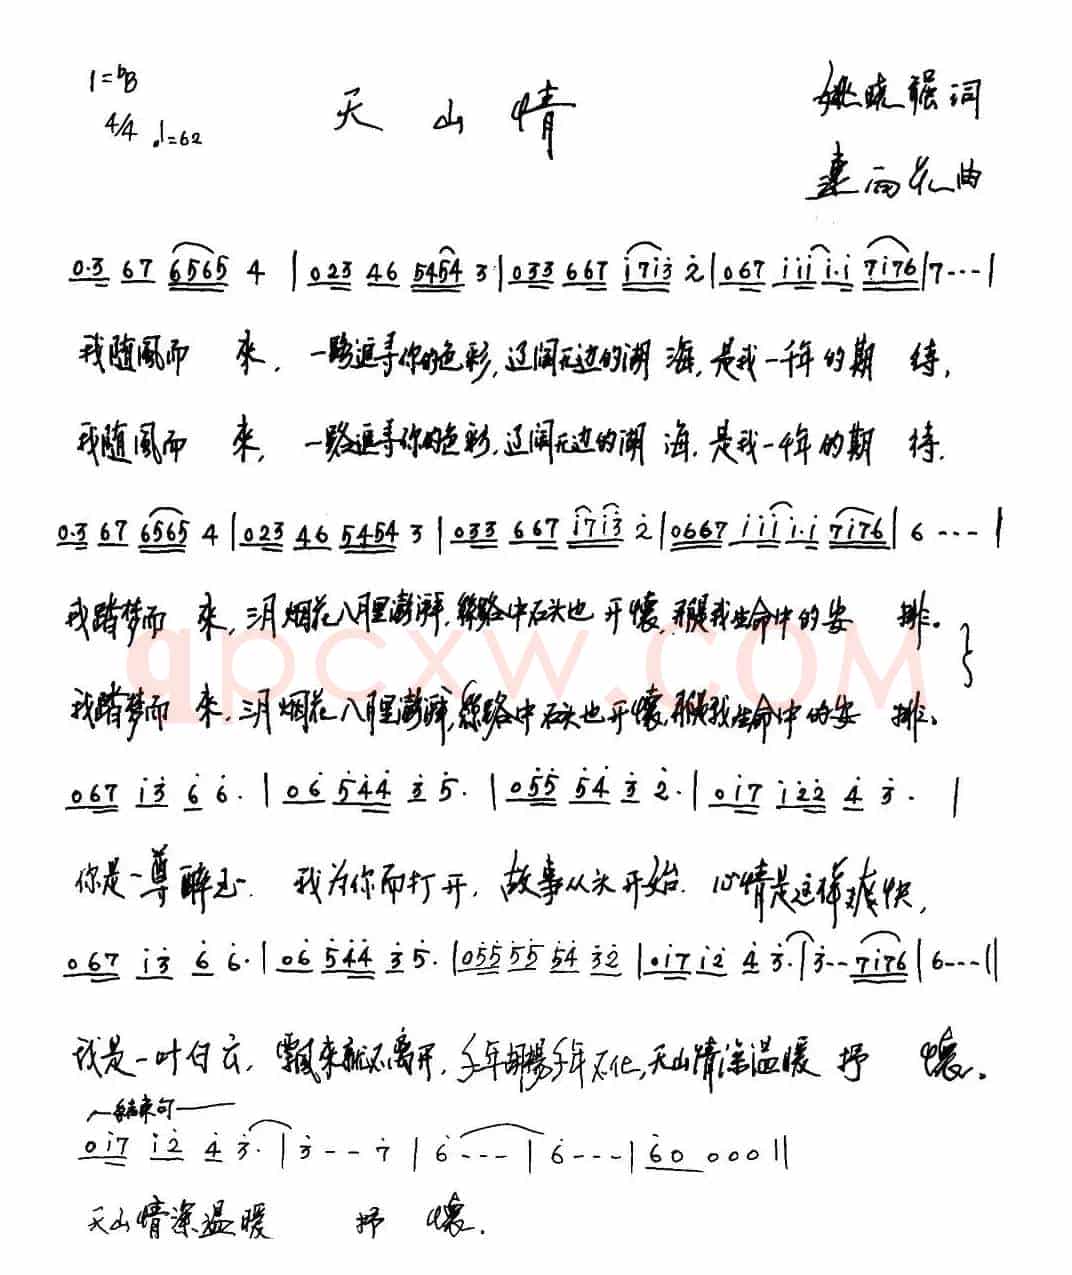 1=bB
4/4 ♩=62
天山情
姚晓强词
雨花曲
0·3 67 6565 4 | 023 46 5454 3 | 033 667 i7i3 2 | 067 iii i·i 7i76 | 7--- |
我随風而 來，一路追寻你的色彩，辽阔无边的湖 海，是我一千年的期 待，
我随風而 來，一路追寻你的色彩，辽阔无边的湖 海，是我一千年的期 待.
0·3 67 6565 4 | 023 46 5454 3 | 033 667 i7i3 2 | 0667 iii i·i 7i76 | 6 --- |
我踏梦而 來，三月烟花八月里澎湃，丝路中石头也 开懷，那是我生命中的安 排。
我踏梦而 來，三月烟花八月里澎湃，丝路中石头也开懷，那是我生命中的安 排。
067 i3 6 6· | 06 544 3 5· | 055 54 3 2· | 0i7 i22 4 3· |
你是一尊醉玉. 我为你而打开，故事从头开始. 心情是这样爽快，
067 i3 6 6· | 06 544 3 5· | 055 55 54 32 | 0i7 i2 4 3· | 3-- 7i76 | 6--- ||
我是一叶白云，飘来就不离开，千年胡楊千年不化，天山情深温暖 抒 懷。
结束句
0i7 i2 4 3· | 3-- 7 | 6--- | 6--- | 60 000 ||
天山情深温暖 抒 懷.
qpcxw.COM